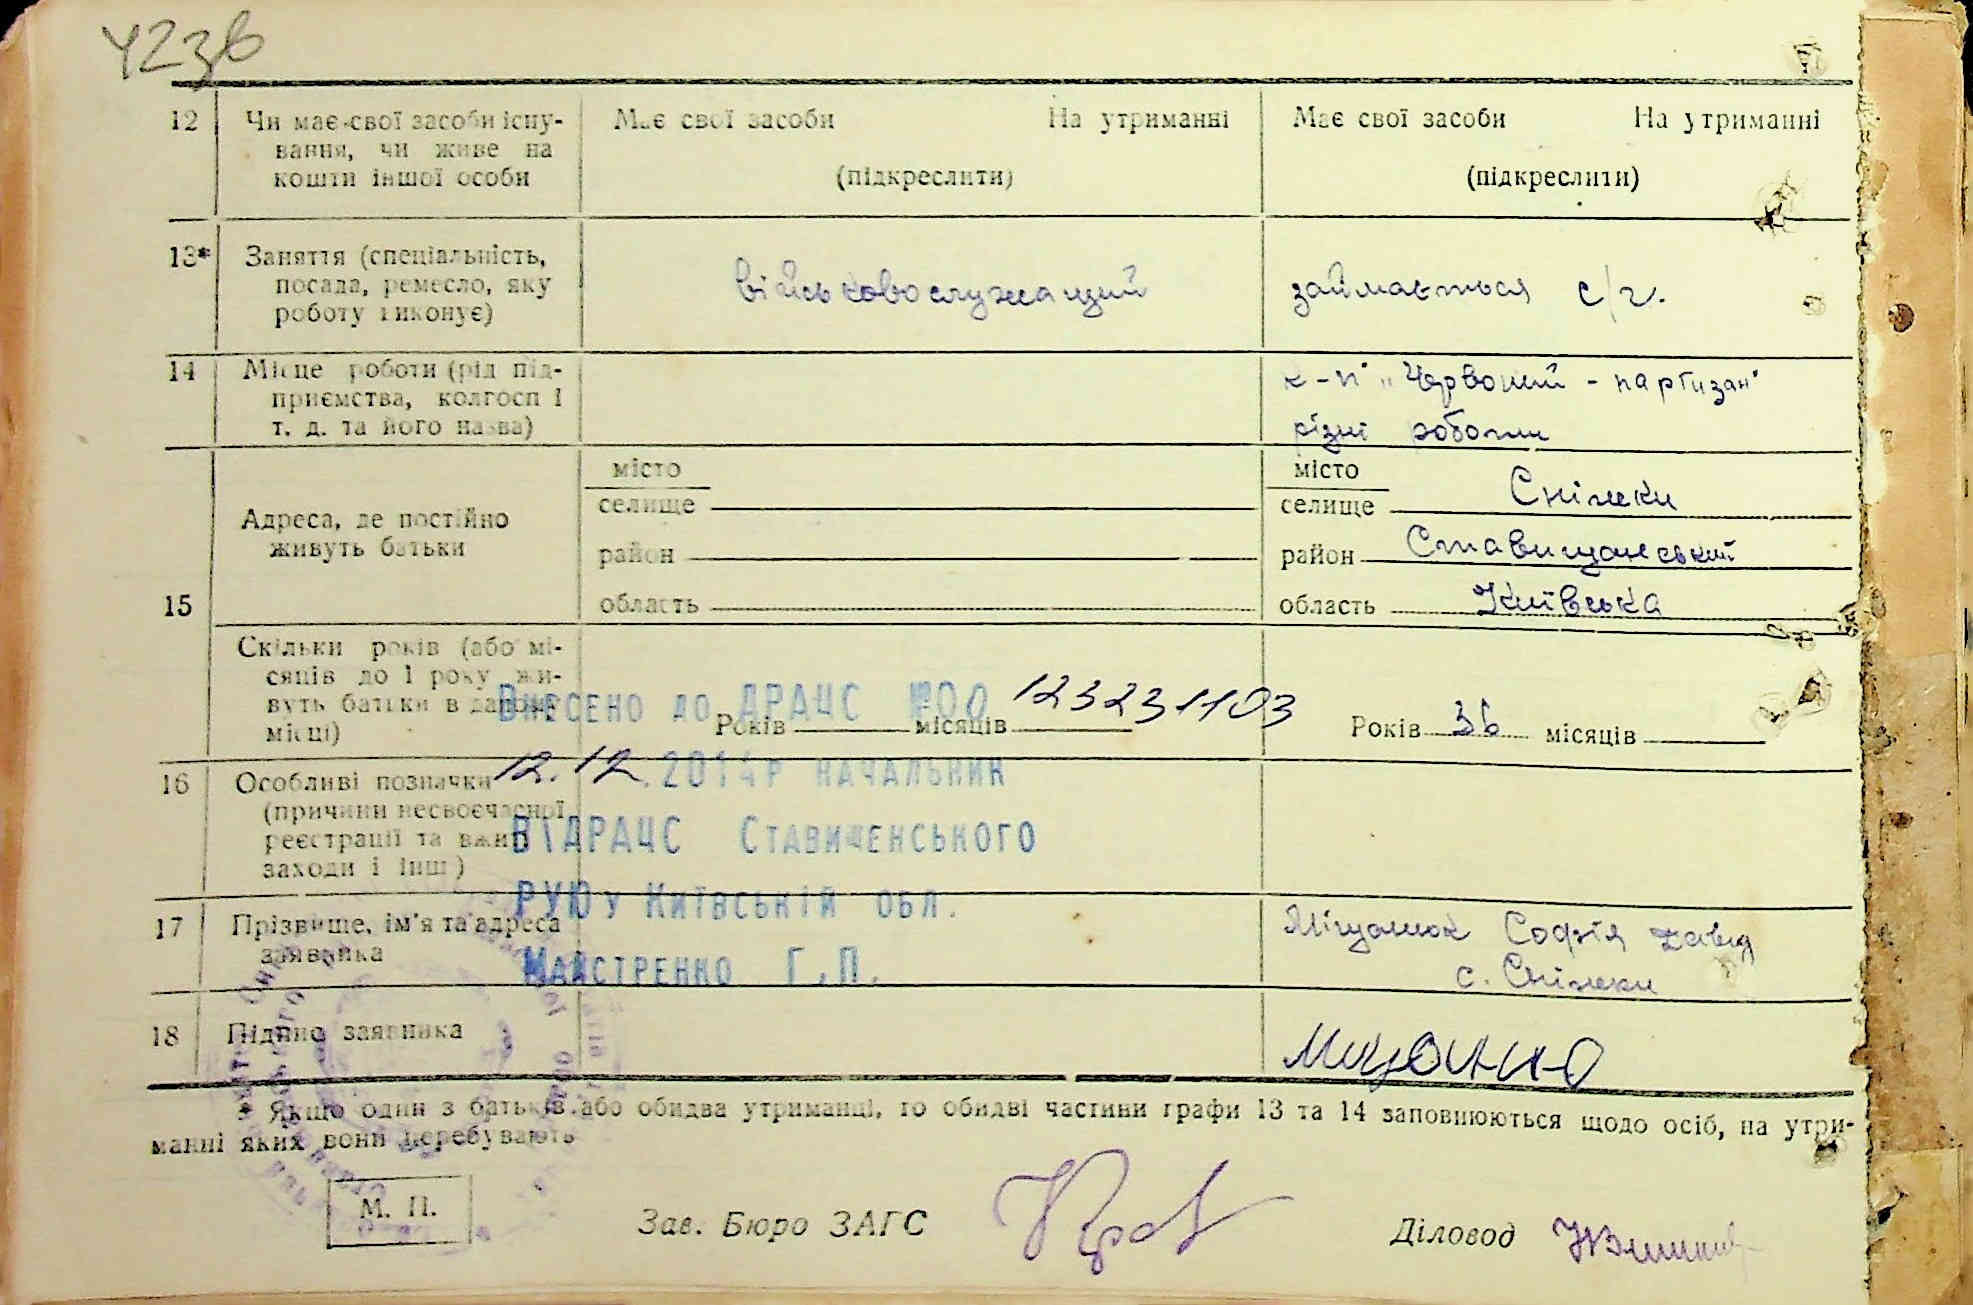 423в
12 Чи має свої засоби існу-
вання, чи живе на
кошти іншої особи
Має свої засоби На утриманні
(підкреслити)
Має свої засоби На утриманні
(підкреслити)
13* Заняття (спеціальність,
посада, ремесло, яку
роботу виконує)
військовослужащий
займається с/г.
14 Місце роботи (рід під-
приємства, колгосп і
т. д. та його назва)
к-п „Червоний - партизан"
різні роботи
15 Адреса, де постійно
живуть батьки
місто
селище
район
область
місто
селище Сніжки
район Ставищанський
область Київська
Скільки років (або мі-
сяців до 1 року жи-
вуть батьки в даному
місці)
Років місяців
Років 36 місяців
Внесено до ДРАЦС №00 123231103
12.12.2014р начальник
ВДРАЦС Ставищенського
РУЮ у Київській обл.
Майстренко Г.П.
16 Особливі позначки
(причини несвоєчасної
реєстрації та вжиті
заходи і інш.)
17 Прізвище, ім'я та адреса
заявника
Міщанюк Софія Давид
с. Сніжки
18 Підпис заявника
* Якщо один з батьків або обидва утриманці, то обидві частини графи 13 та 14 заповнюються щодо осіб, на утри-
манні яких вони перебувають
М. П.
Зав. Бюро ЗАГС
Діловод